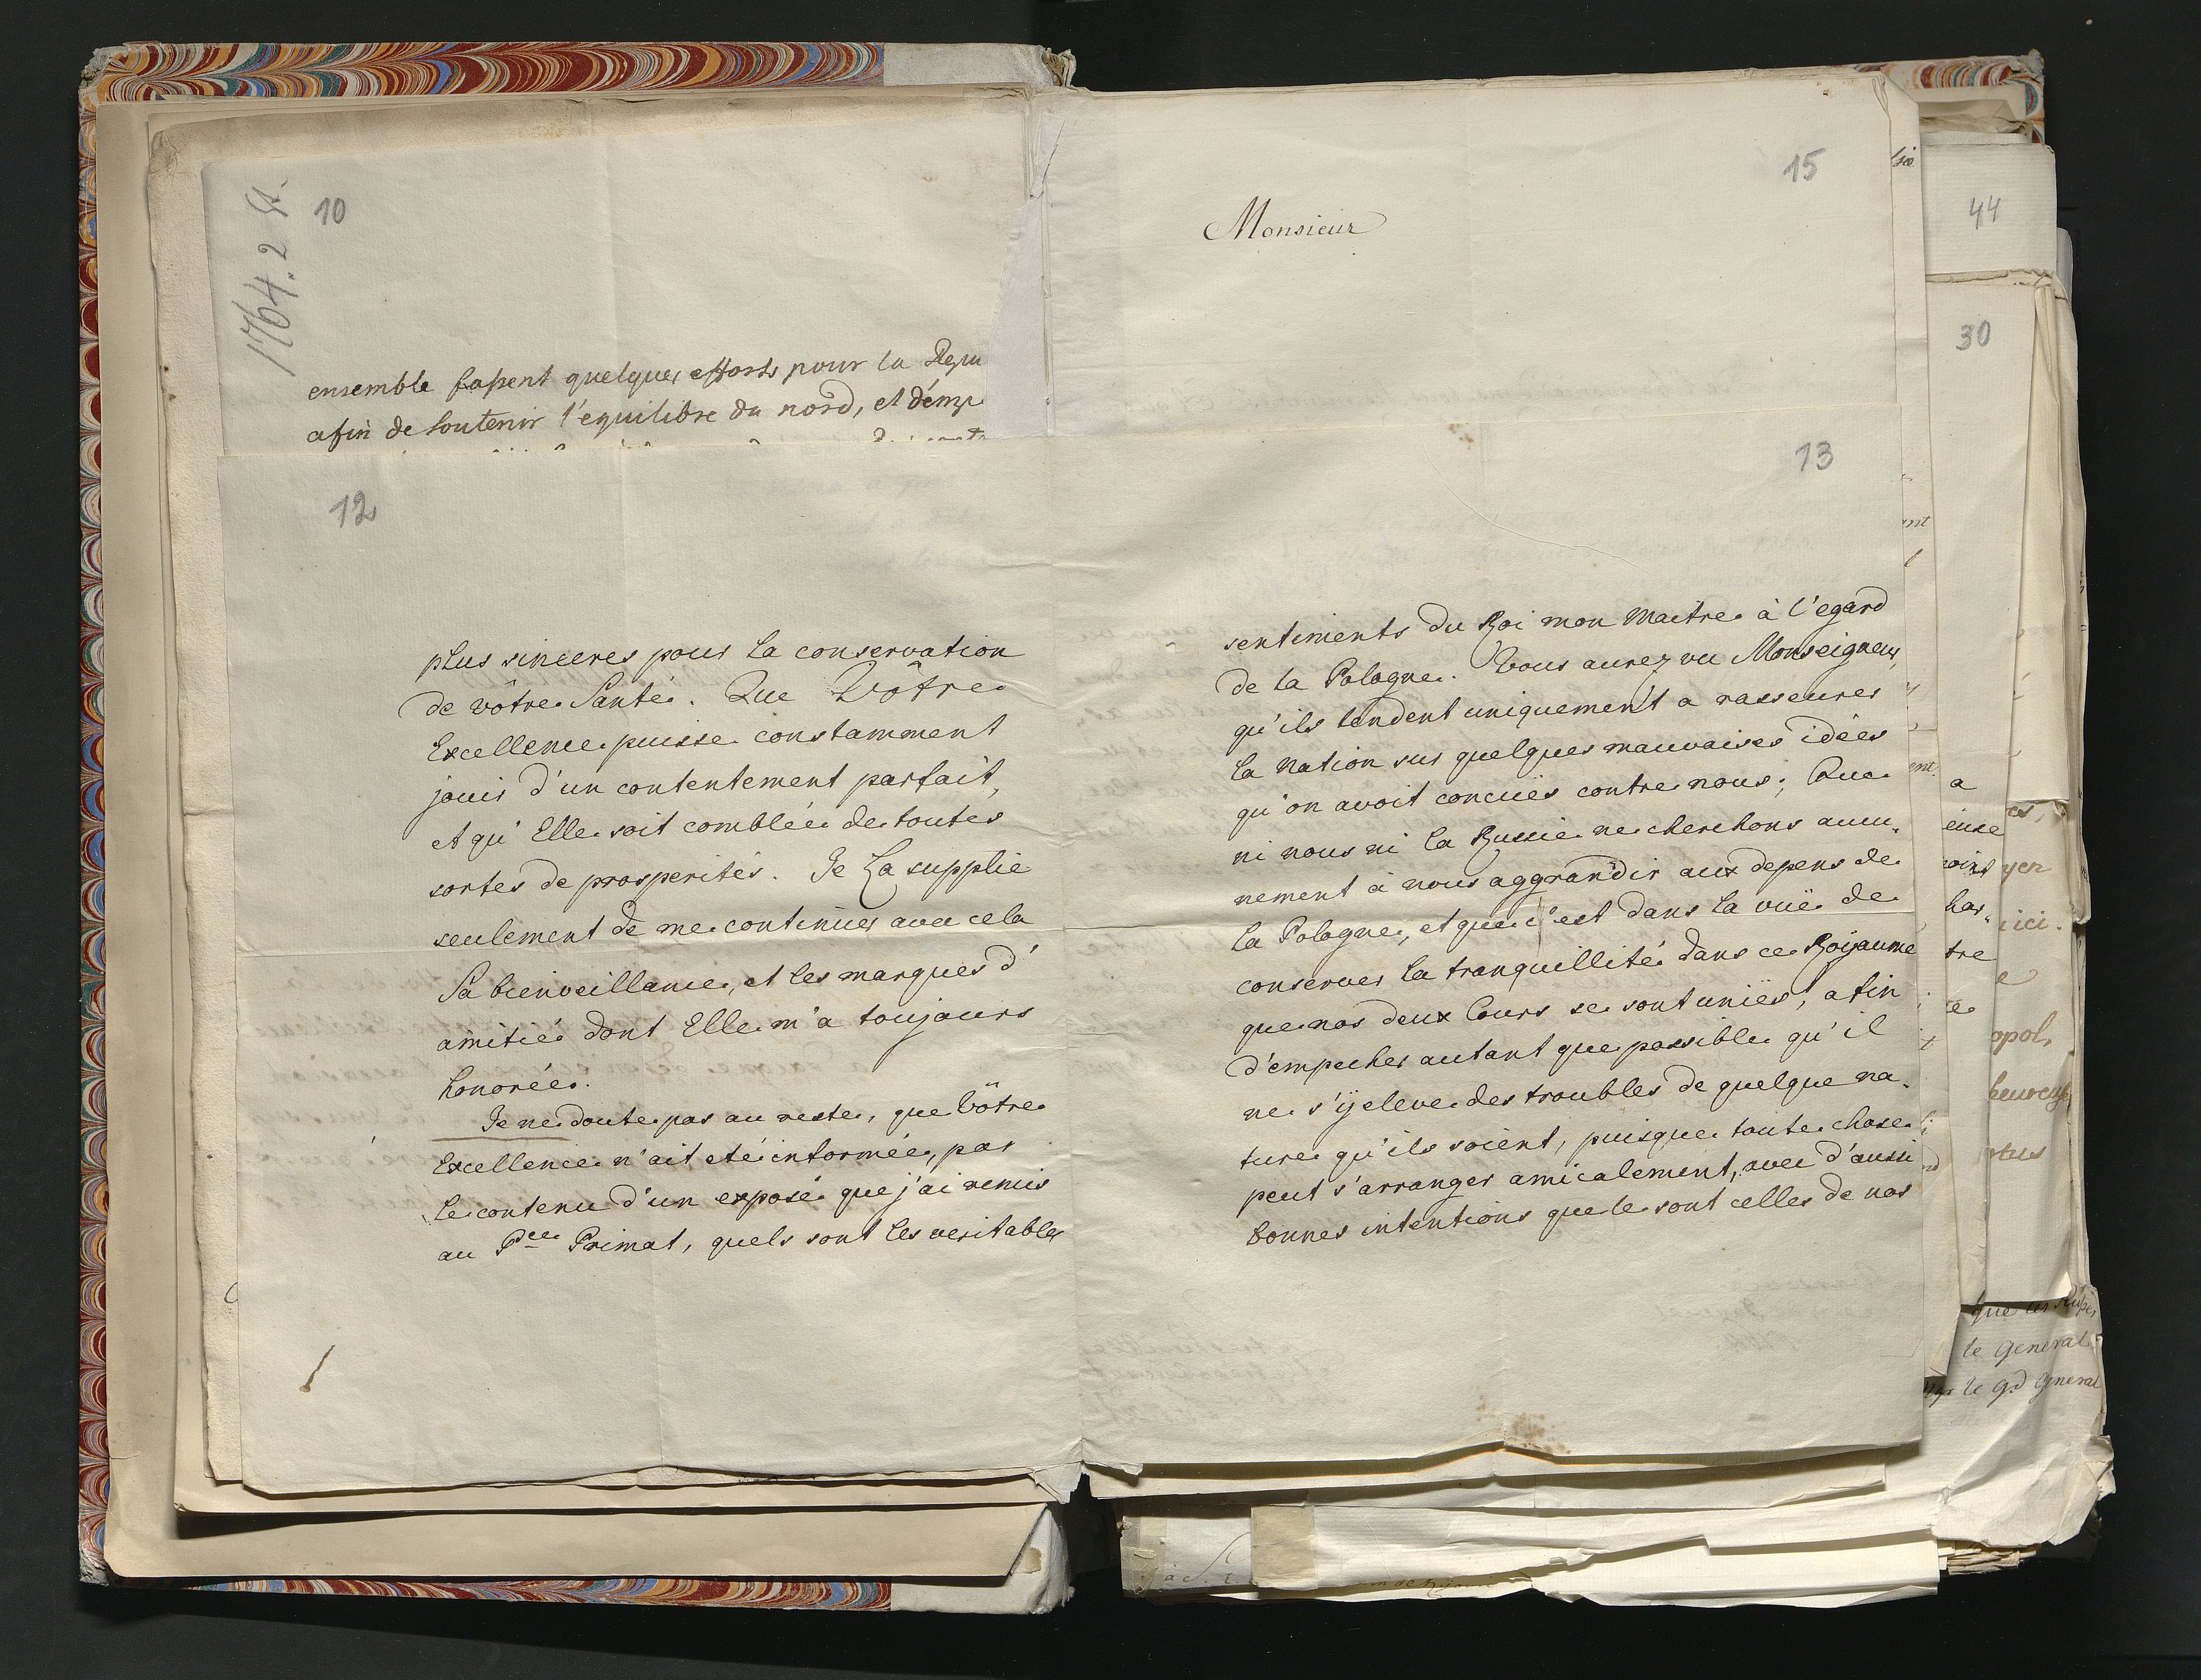 1764. 2 St.
10
ensemble fassent quelques efforts pour la Repu
afin de soutenir l'equilibre du nord, et d'emp
12
plus sinceres pour la conservation
de vôtre Santé. Que Vôtre
Excellence puisse constamment
jouir d'un contentement parfait,
et qu'Elle soit comblée de toutes
sortes de prosperités. Je La supplie
seulement de me continuer avec cela
Sa bienveillance, et les marques d'
amitié dont Elle m'a toujours
honorée.
Je ne doute pas au reste, que Vôtre
Excellence n'ait eté informée, par
le contenu d'un exposé que j'ai remis
au Pce Primat, quels sont les veritables
15
Monsieur
13
sentiments du Roi mon Maitre à l'egard
de la Pologne. Vous aurez vu Monseigneur,
qu'ils tendent uniquement a rasseurer
la Nation sur quelques mauvaises idées
qu'on avoit concües contre nous; Que
ni nous ni la Russie ne cherchons aucu-
nement à nous aggrandir aux depens de
la Pologne, et que c'est dans la vuë de
conserver la tranquillité dans ce Roijaume
que nos deux Cours se sont uniës, afin
d'empecher autant que possible qu'il
ne s'ij eleve des troubles de quelque na-
ture qu'ils soient, puisque toute chose
peut s'arranger amicalement, avec d'aussi
bonnes intentions que le sont celles de nos
44
30
ent
ent.
a
euse
oint
har-
tre
es,
yen
ici.
e
opol,
heureuse
que les Russes
le General
le Gd General